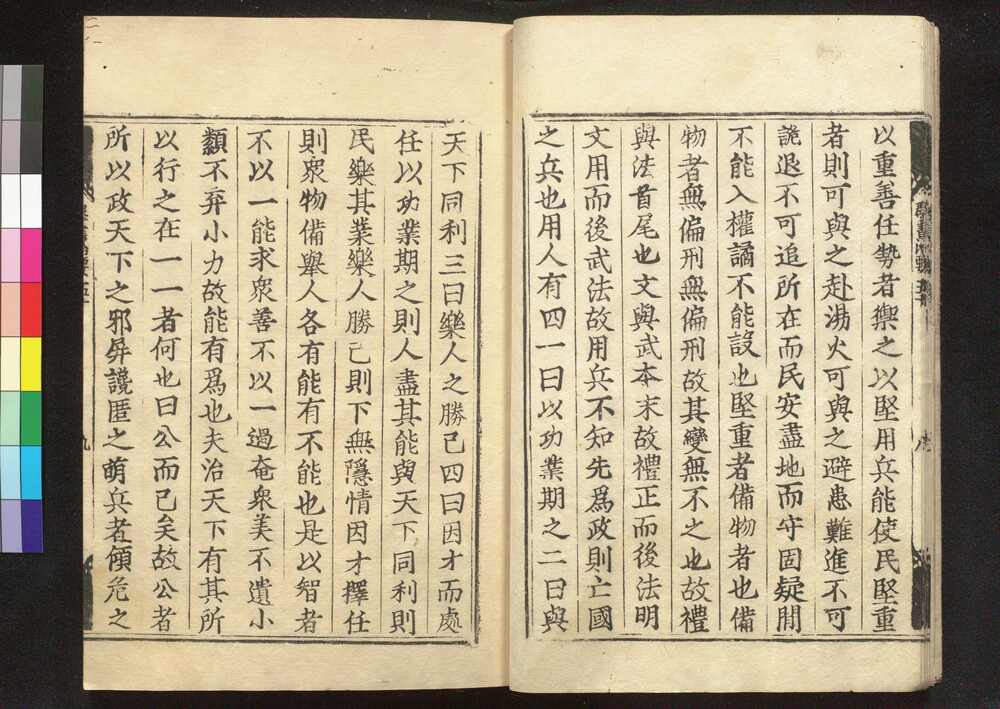 以重善任勢者禦之以堅用兵能使民堅重
者則可與之赴湯火可與之避患難進不可
詭退不可追所在而民安盡地而守固疑閒
不能入權譎不能設也堅重者備物者也備
物者無偏刑無偏刑故其變無不之也故禮
與法首尾也文與武本末故禮正而後法明
文用而後武法故用兵不知先爲政則亡國
之兵也用人有四一曰以功業期之二曰與
天下同利三曰樂人之勝己四曰因才而處
任以功業期之則人盡其能與天下同利則
民樂其業樂人勝己則下無隱情因才擇任
則衆物備舉人各有能有不能也是以智者
不以一能求衆善不以一過奄衆美不遺小
纇不弃小力故能有爲也夫治天下有其所
以行之在一一者何也曰公而已矣故公者
所以政天下之邪屏讒匿之萌兵者傾危之
九